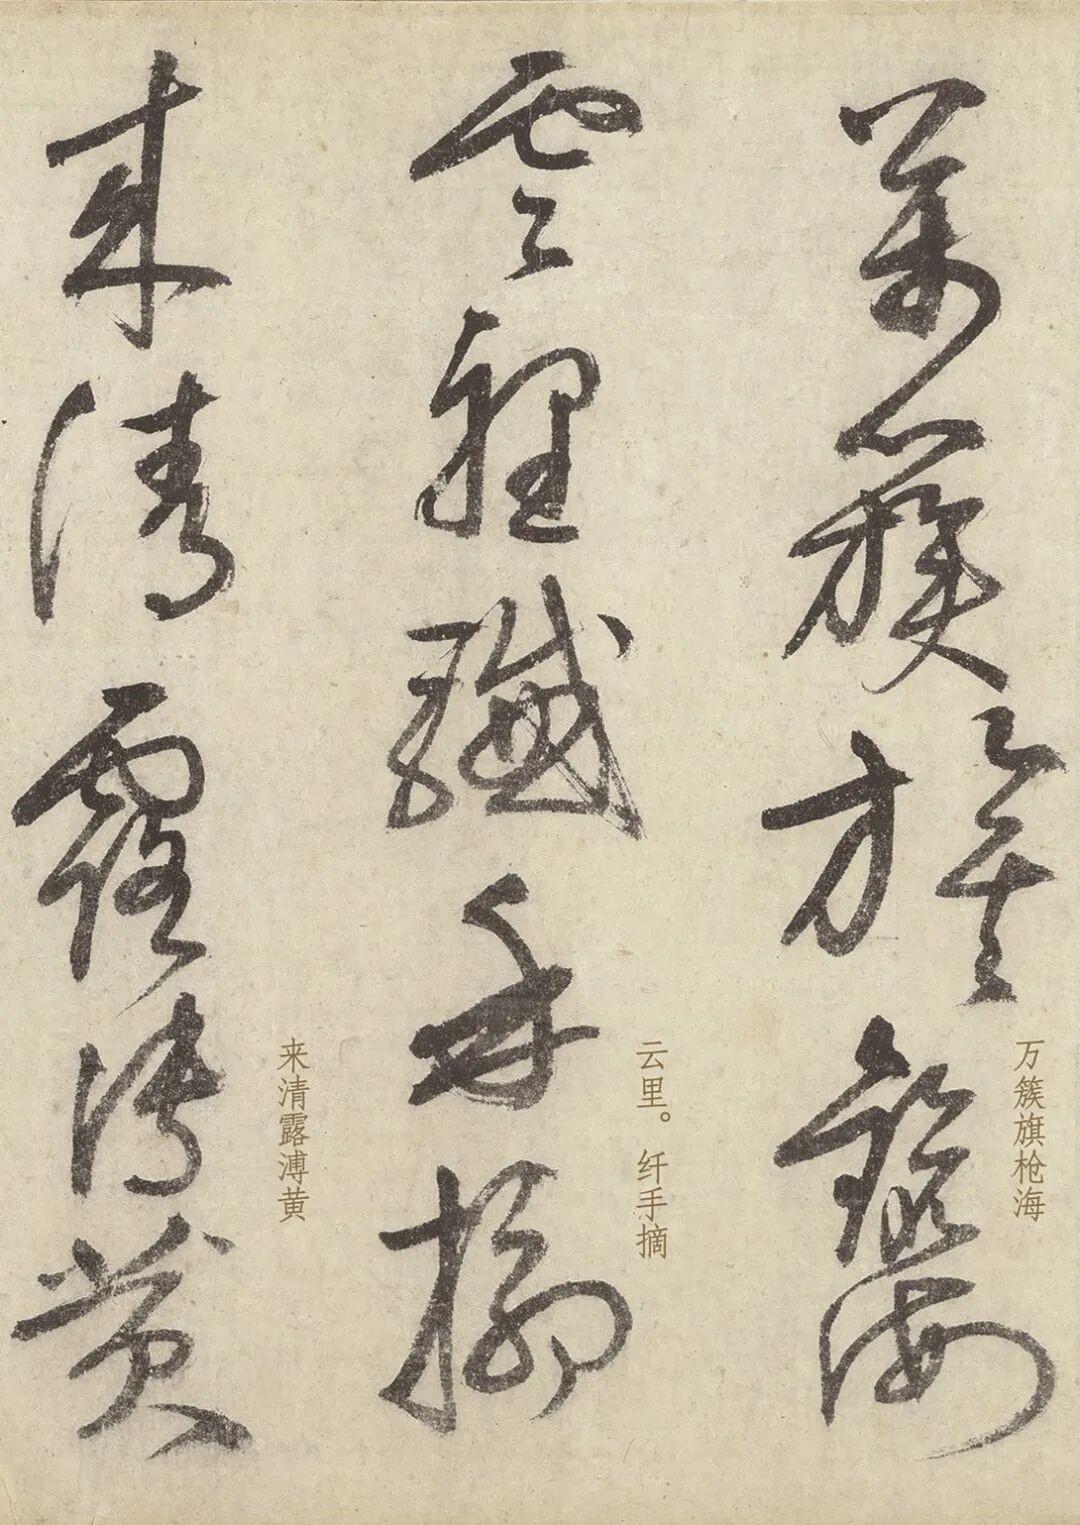 萬簇旗鎗海
万簇旗枪海
雲裡纖手摘
云里。纤手摘
来清露漙黄
来清露溥黄